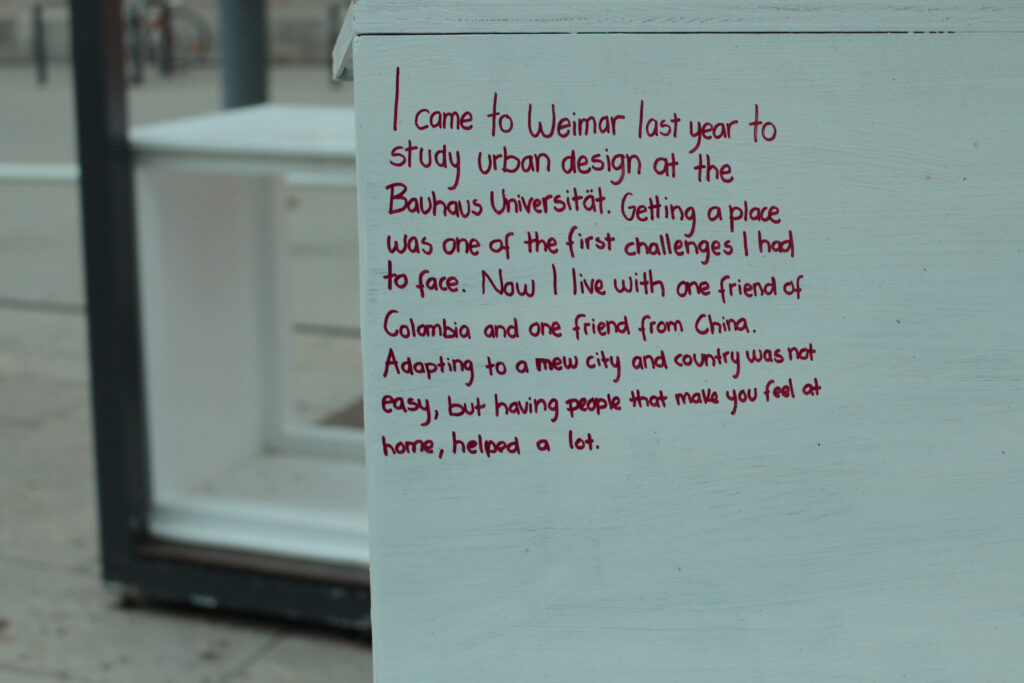 I came to Weimar last year to
study urban design at the
Bauhaus Universität. Getting a place
was one of the first challenges I had
to face. Now I live with one friend of
Colombia and one friend from China.
Adapting to a mew city and country was not
easy, but having people that make you feel at
home, helped a lot.